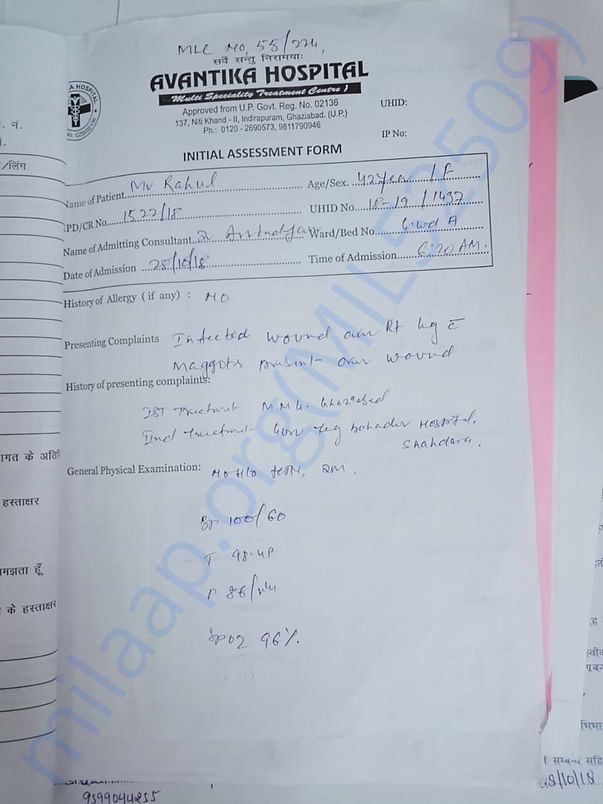 MLC No, 55/224,
सर्वे सन्तु निरामयाः
AVANTIKA HOSPITAL
Multi Speciality Treatment Centre )
Approved from U.P. Govt. Reg. No. 02136
137, Niti Khand - II, Indirapuram, Ghaziabad. (U.P.)
Ph.: 0120 - 2690573, 9811790946
UHID:
IP No:
INITIAL ASSESSMENT FORM
Name of Patient Mr Rahul Age/Sex. 42 year / F
IPD/CR No. 1522/18 UHID No. 18-19 / 1437
Name of Admitting Consultant Dr Ward/Bed No. G.wd A
Date of Admission 28/10/18 Time of Admission 6:20 AM.
History of Allergy ( if any) : NO
Presenting Complaints Infected wound over Rt leg c̄
Maggots present over wound
History of presenting complaints:
Ist Treatment M.M.G. Ghaziabad
IInd treatment Guru Teg bahader Hospital,
Shahdara.
General Physical Examination: No H/o HTN, DM.
BP 100/60
T 98.4F
P 86/min
SpO2 96%
milaap.org(MIL52509)
. नं.
/लिंग
गत के अति
हस्ताक्षर
मझता हूँ
के हस्ताक्षर
9599044255
सम्बन्ध सहि
28/10/18